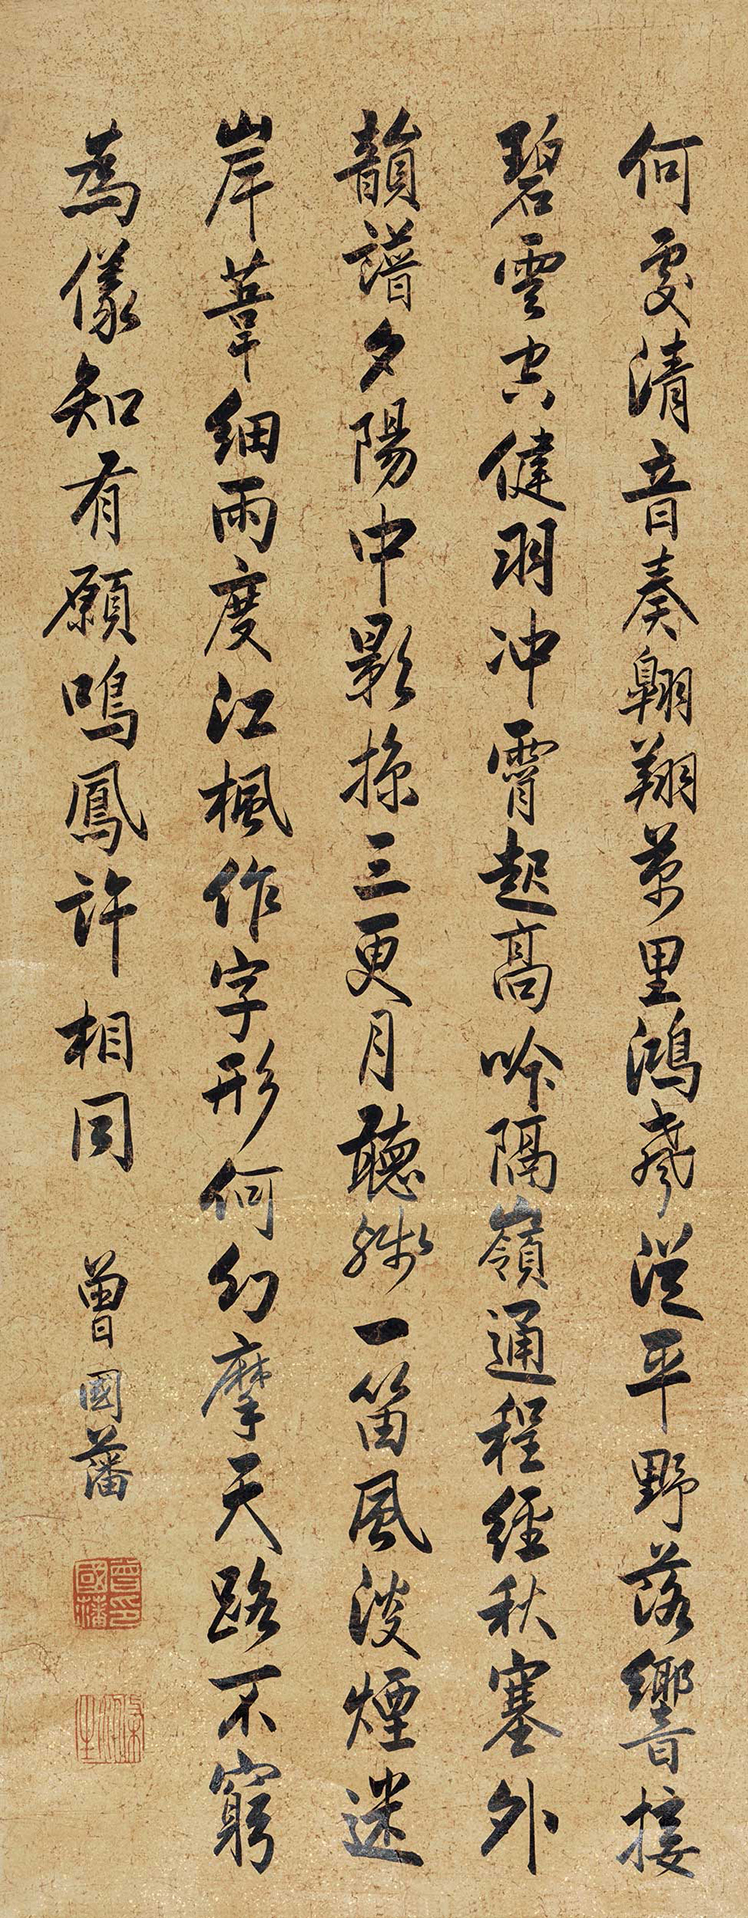 何處清音奏翱翔萬里鴻聲從平野落響接
碧雲空健羽冲霄起高吟隔嶺通程經秋塞外
韻譜夕陽中影掠三更月聽殘一笛風淡煙迷
岸葦細雨度江楓作字形何幻摩天路不窮
為儀知有願鳴鳳許相同
曾國藩
曾國藩印